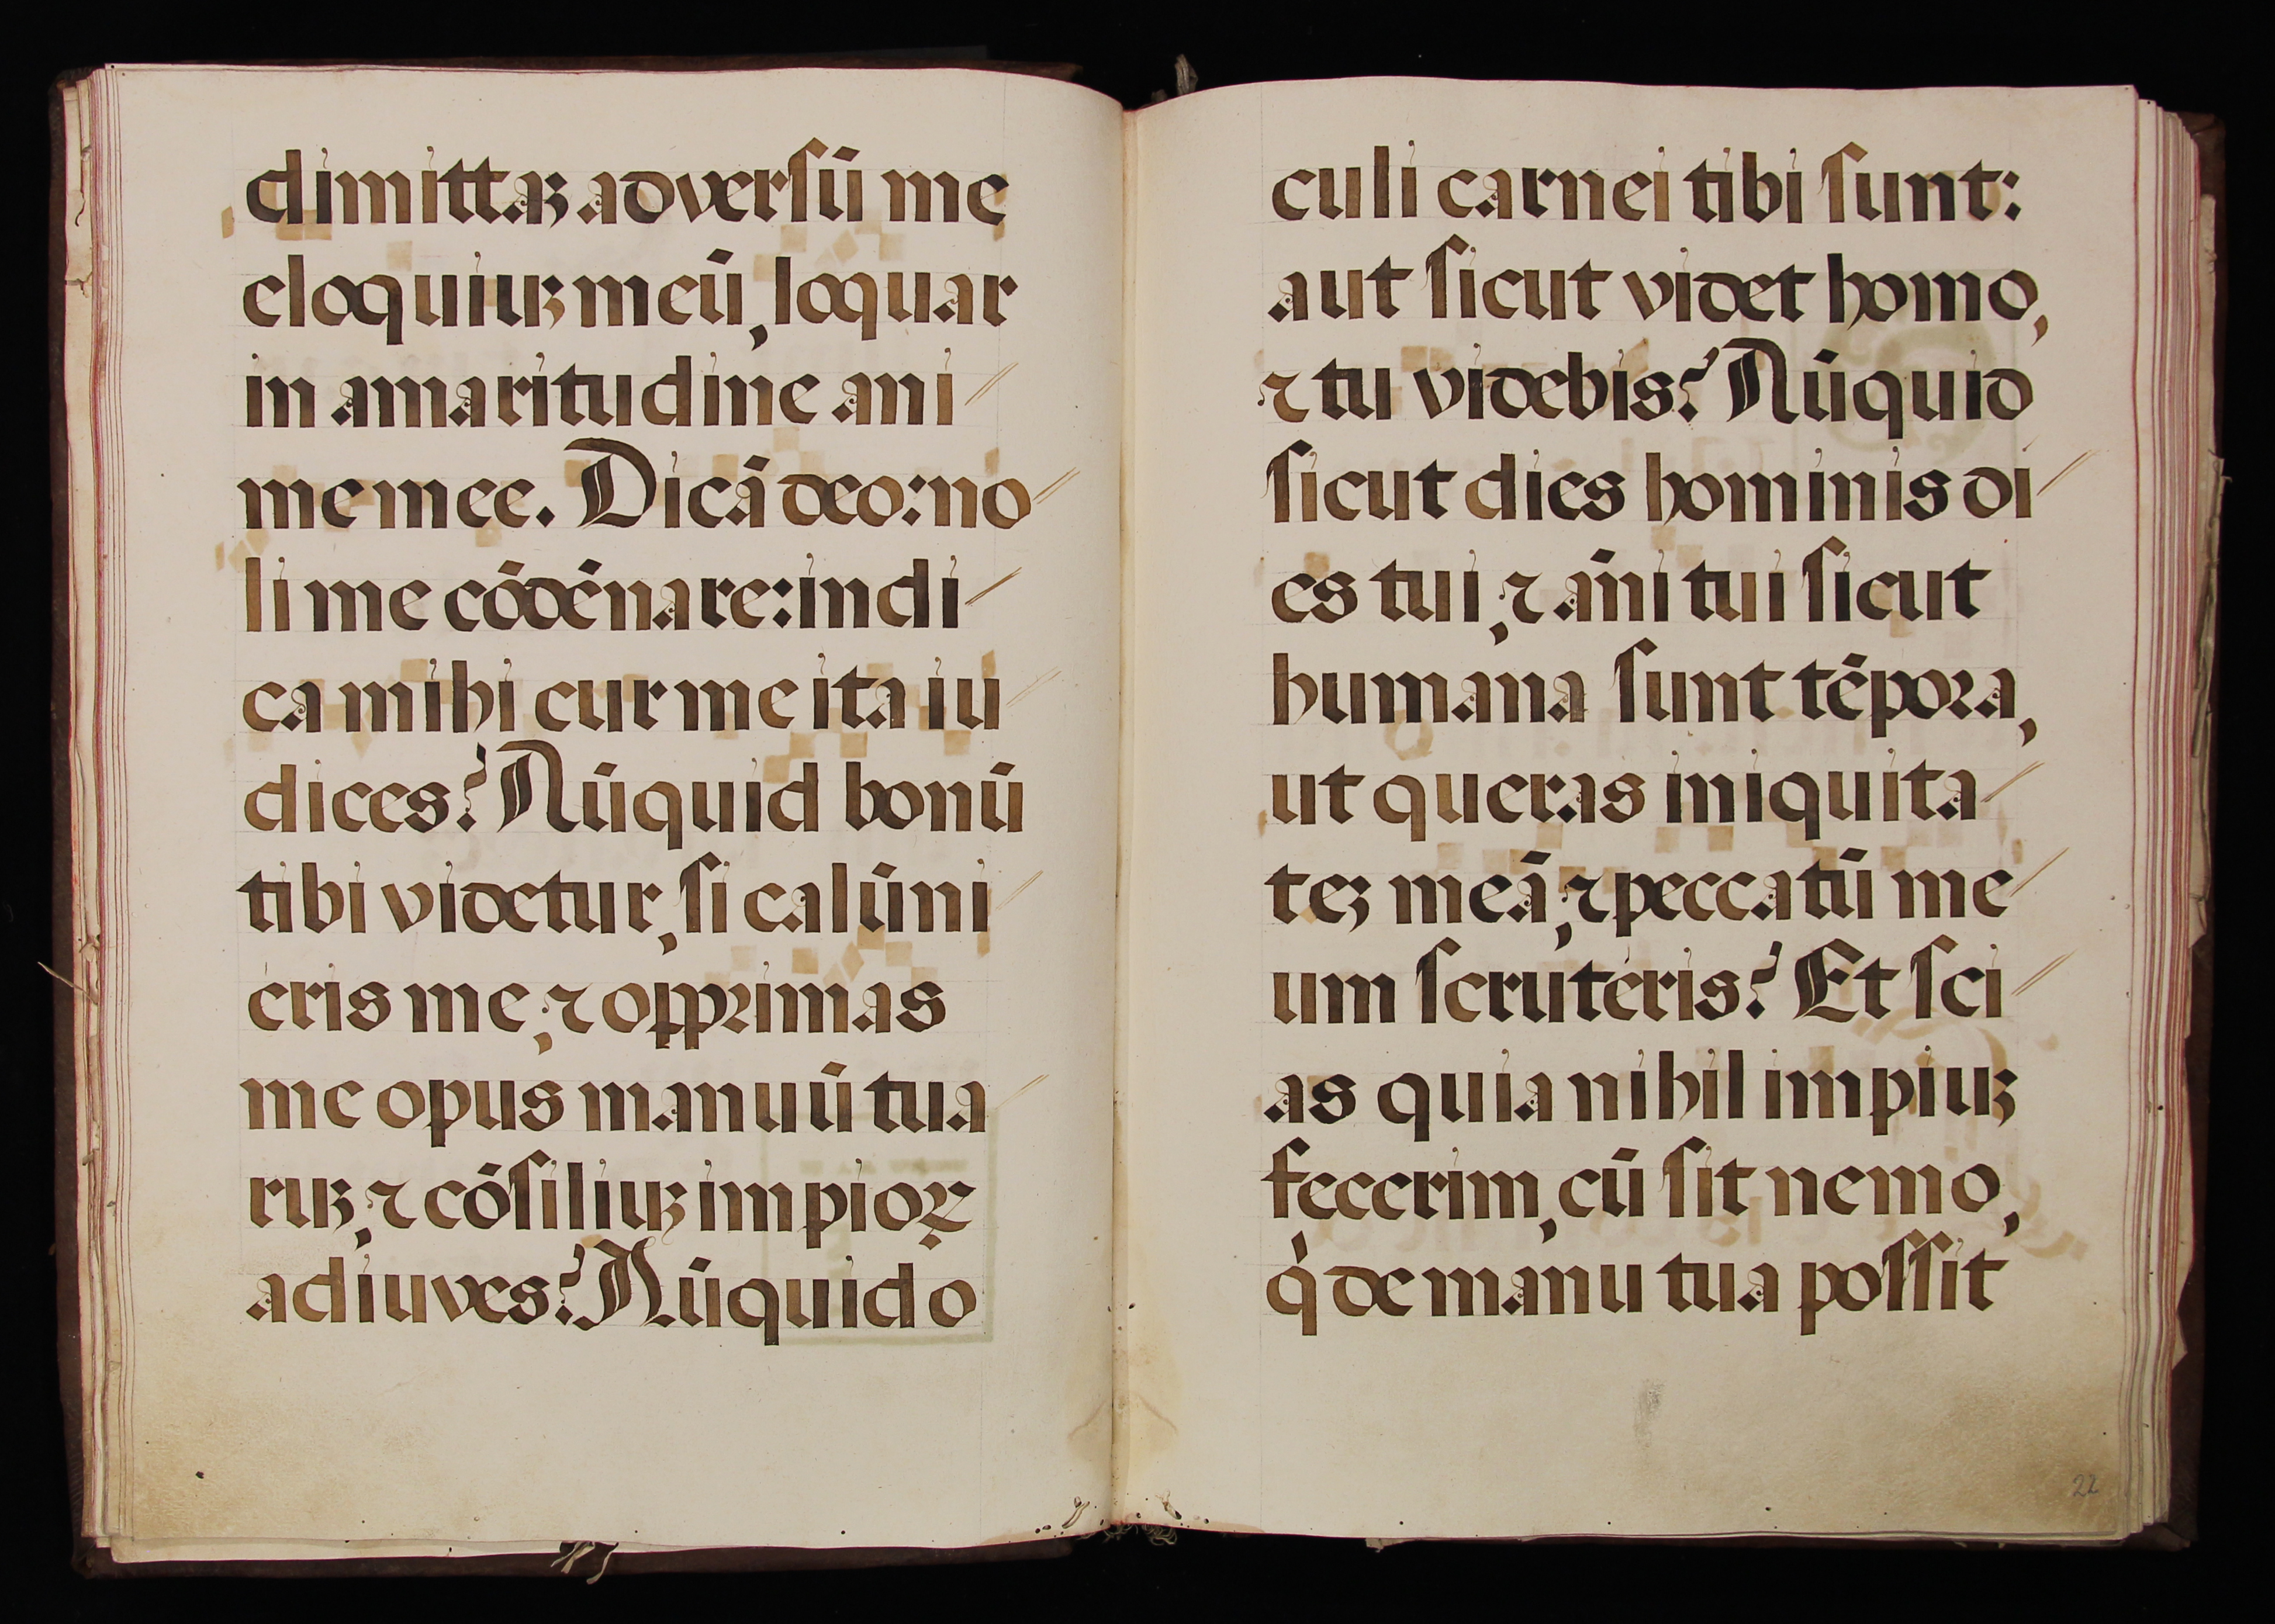 dimittaꝫ adversū me
eloquiuꝫ meū, loquar
in amaritudine ani
me mee. Dicā deo: no
li me cōdēnare: indi
ca mihi cur me ita iu
dices? Nūquid bonū
tibi videtur, si calūni
eris me, ⁊ opprimas
me opus manuū tua
ruꝫ, ⁊ cōsiliuꝫ impioꝝ
adiuves? Nūquid o
culi carnei tibi sunt:
aut sicut videt homo,
⁊ tu videbis? Nūquid
sicut dies hominis di
es tui, ⁊ āni tui sicut
humana sunt tēpora,
ut queras iniquita
teꝫ meā, ⁊ peccatū me
um scruteris? Et sci
as quia nihil impiuꝫ
fecerim, cū sit nemo,
q̇ de manu tua possit
22